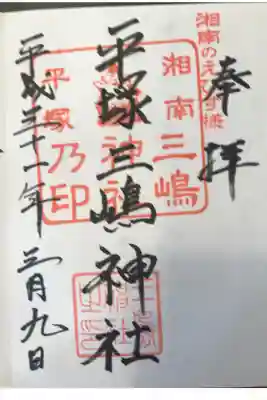 湘南のえびす様
奉拝
湘南三嶋
平塚三嶋神社
平塚乃印
平成三十一年 三月九日